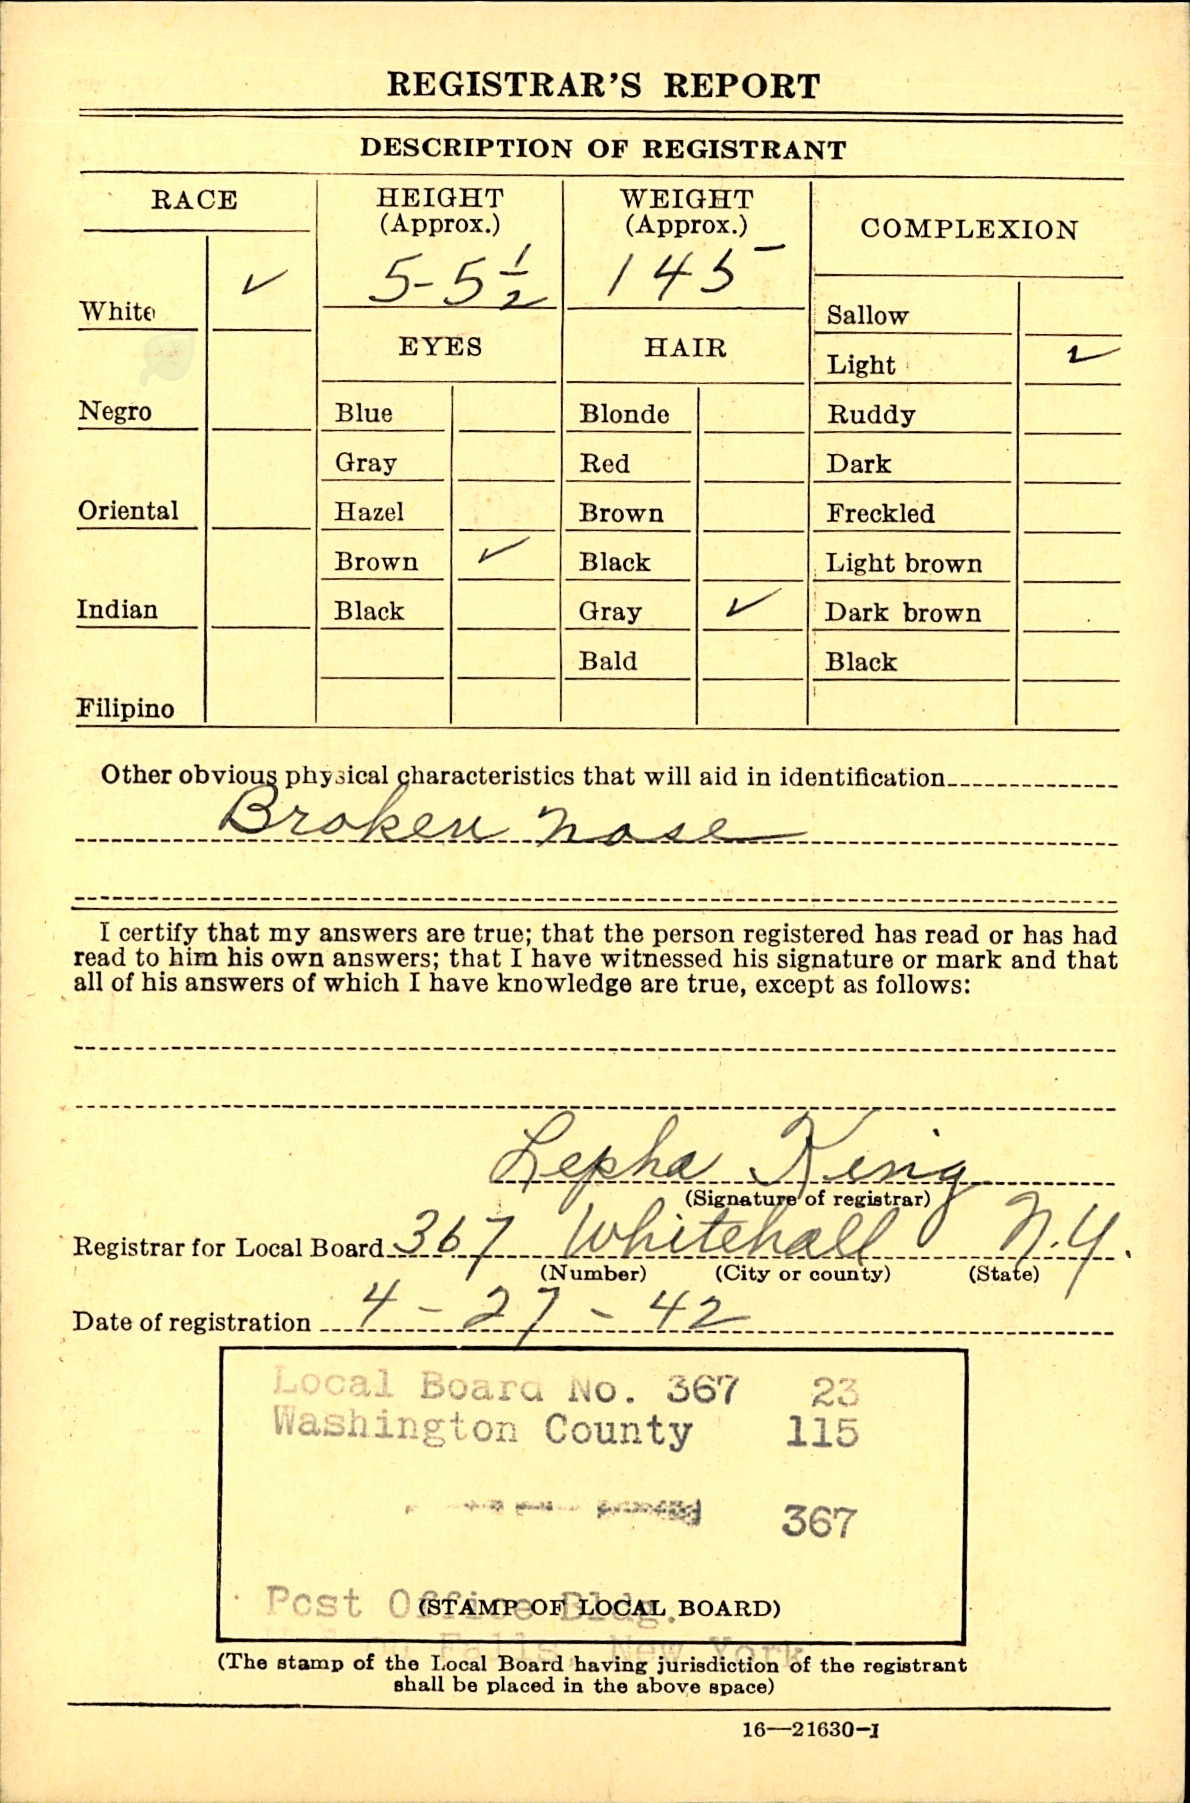 REGISTRAR'S REPORT
DESCRIPTION OF REGISTRANT
RACE
HEIGHT
(Approx.)
WEIGHT
(Approx.)
COMPLEXION
5-5 1/2
145
White ✓
EYES
HAIR
Sallow
Light ✓
Negro
Blue
Blonde
Ruddy
Gray
Red
Dark
Oriental
Hazel
Brown
Freckled
Brown ✓
Black
Light brown
Indian
Black
Gray ✓
Dark brown
Bald
Black
Filipino
Other obvious physical characteristics that will aid in identification
Broken nose
I certify that my answers are true; that the person registered has read or has had
read to him his own answers; that I have witnessed his signature or mark and that
all of his answers of which I have knowledge are true, except as follows:
Lepha King
(Signature of registrar)
Registrar for Local Board 367 Whitehall N.Y.
(Number) (City or county) (State)
Date of registration 4-27-42
Local Board No. 367 23
Washington County 115
367
Post Office Bldg.
(STAMP OF LOCAL BOARD)
Falls, New York
(The stamp of the Local Board having jurisdiction of the registrant
shall be placed in the above space)
16—21630-1